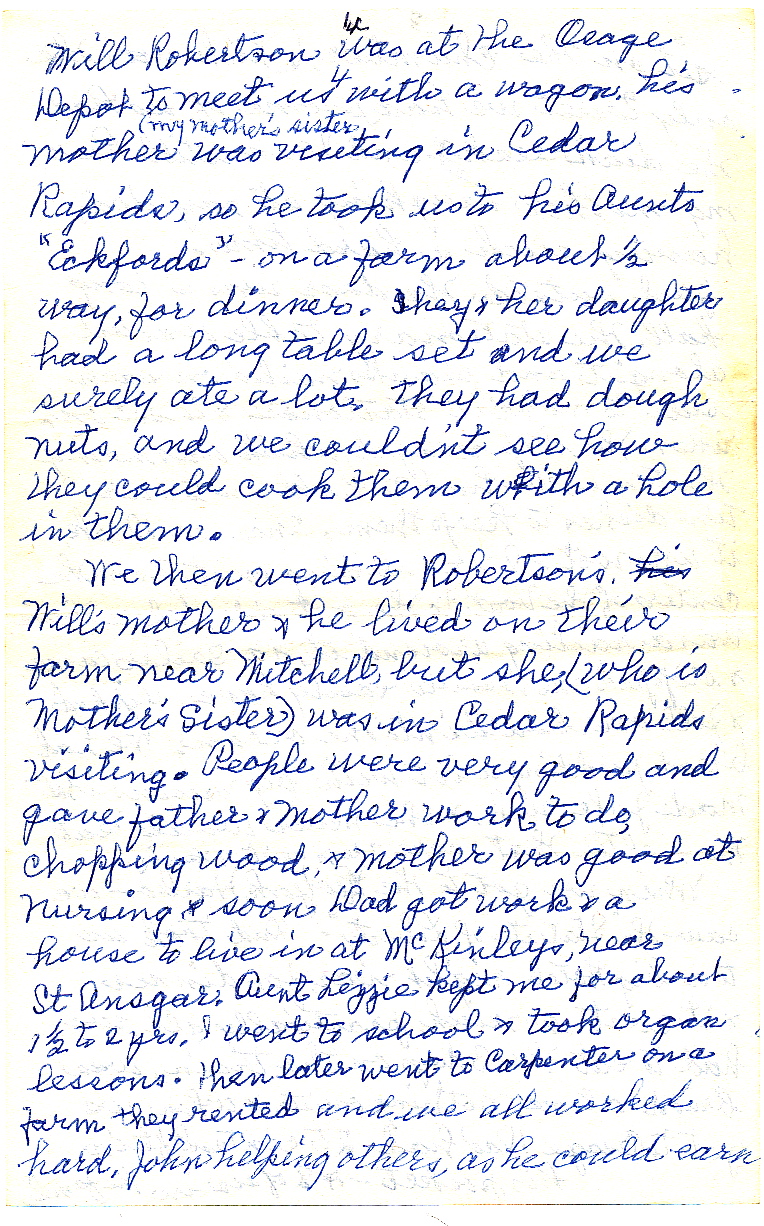 4
Will Robertson was at the Osage
Depot to meet us 4 with a wagon. his
(my mother's sister)
mother was visiting in Cedar
Rapids, so he took us to his Aunts
"Eckfords" - on a farm about 1/2
way, for dinner. They & her daughter
had a long table set and we
surely ate a lot. They had dough
nuts, and we couldn't see how
they could cook them with a hole
in them.
We then went to Robertson's. his
Will's mother & he lived on their
farm near Mitchell, but she, (who is
Mother's Sister) was in Cedar Rapids
visiting. People were very good and
gave father & mother work to do,
chopping wood, & mother was good at
nursing & soon Dad got work & a
house to live in at McKinleys, near
St Ansgar. Aunt Lizzie kept me for about
1 1/2 to 2 yrs. I went to school & took organ
lessons. Then later went to Carpenter on a
farm they rented and we all worked
hard, John helping others, as he could earn